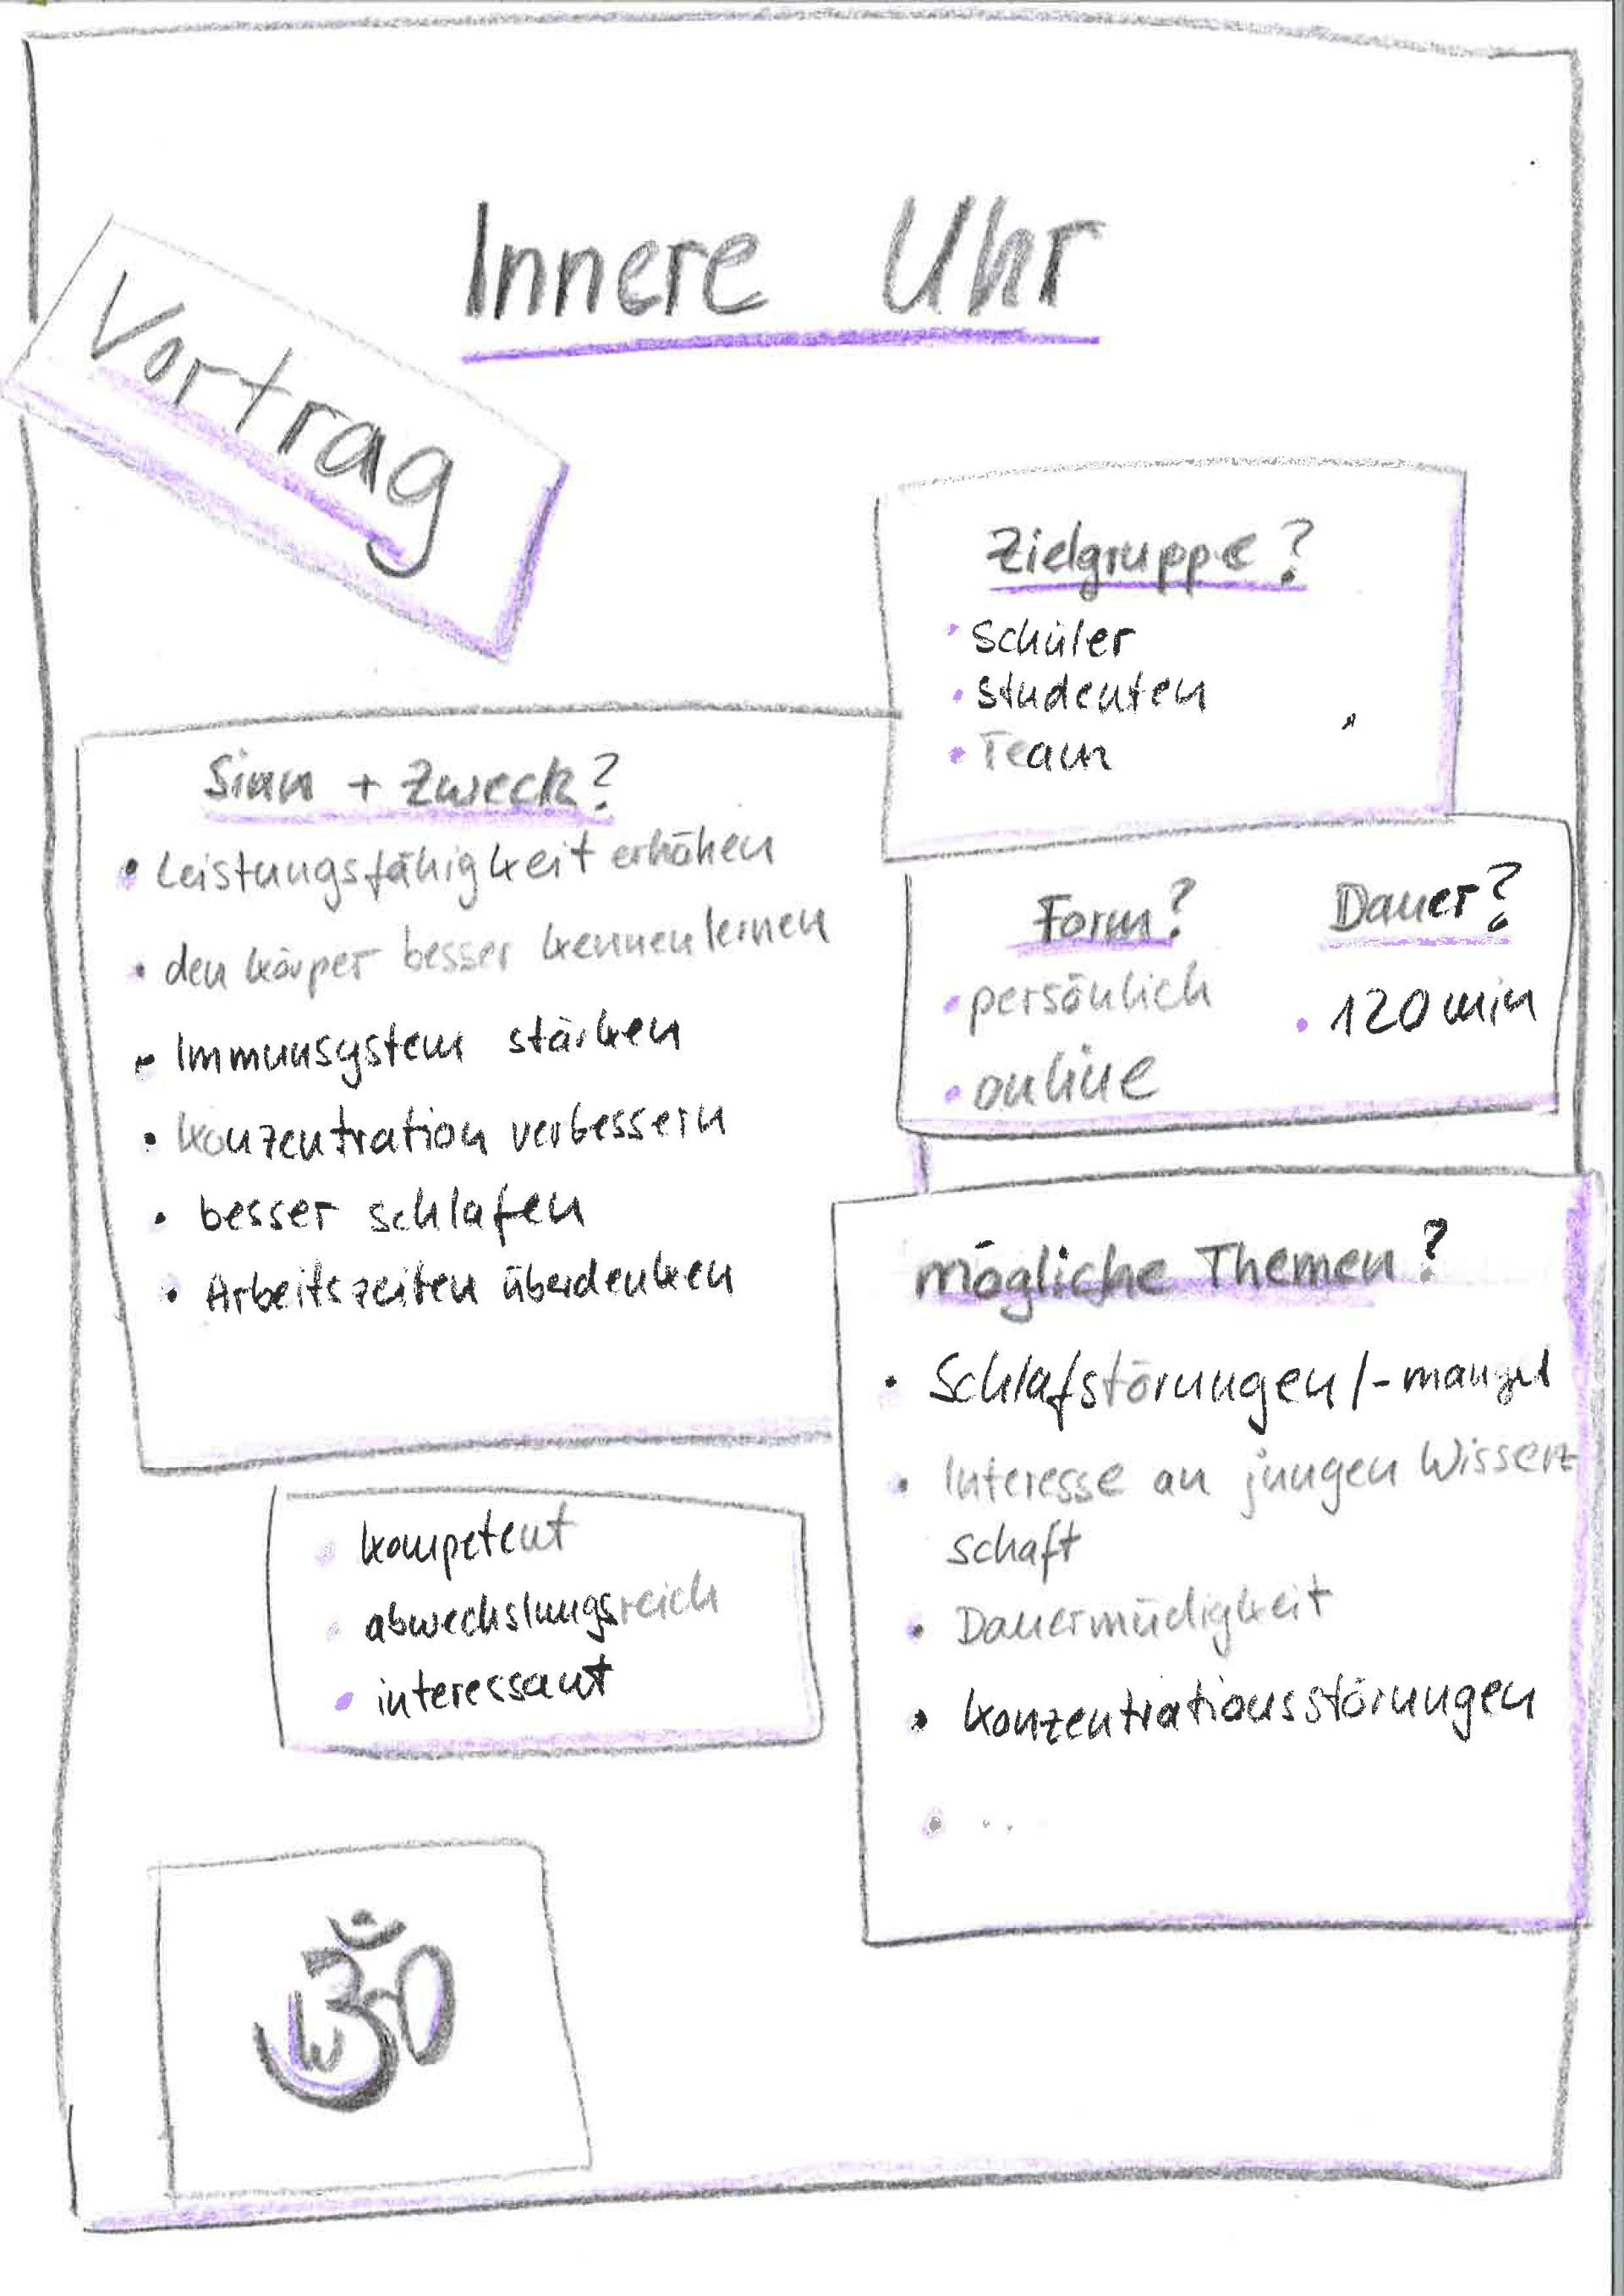 Innere Uhr
Vortrag
Zielgruppe?
• Schüler
• Studenten
• Team
Sinn + Zweck?
• Leistungsfähigkeit erhöhen
• den Körper besser kennenlernen
• Immunsystem stärken
• Konzentration verbessern
• besser schlafen
• Arbeitszeiten überdenken
Form?
• persönlich
• online
Dauer?
• 120 min
mögliche Themen?
• Schlafstörungen/-mangel
• Interesse an jungen Wissen-
schaft
• Dauermüdigkeit
• Konzentrationsstörungen
• ...
• kompetent
• abwechslungsreich
• interessant
ॐ